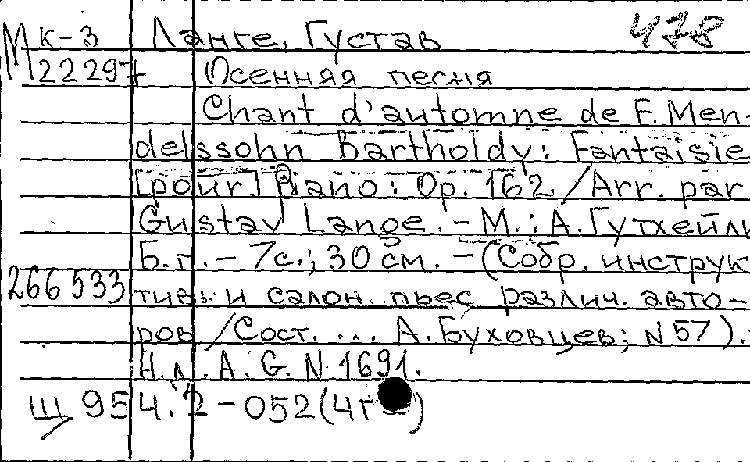 М к-3 Ланге, Густав 478
22297 Осенняя песня
Chant d'automne de F. Men-
delssohn Bartholdy: Fantaisie
[pour] Piano: Op. 162 / Arr. par
Gustav Lange. - М.: А. Гутхейль
Б.г. - 7с.; 30 см. - (Собр. инструк
266533 тив. и салон. пьес различ. авто-
ров / Сост. ... А. Буховцев; N 57).
Н.д. A. G. N 1691.
Щ 954.2-052(4Г)